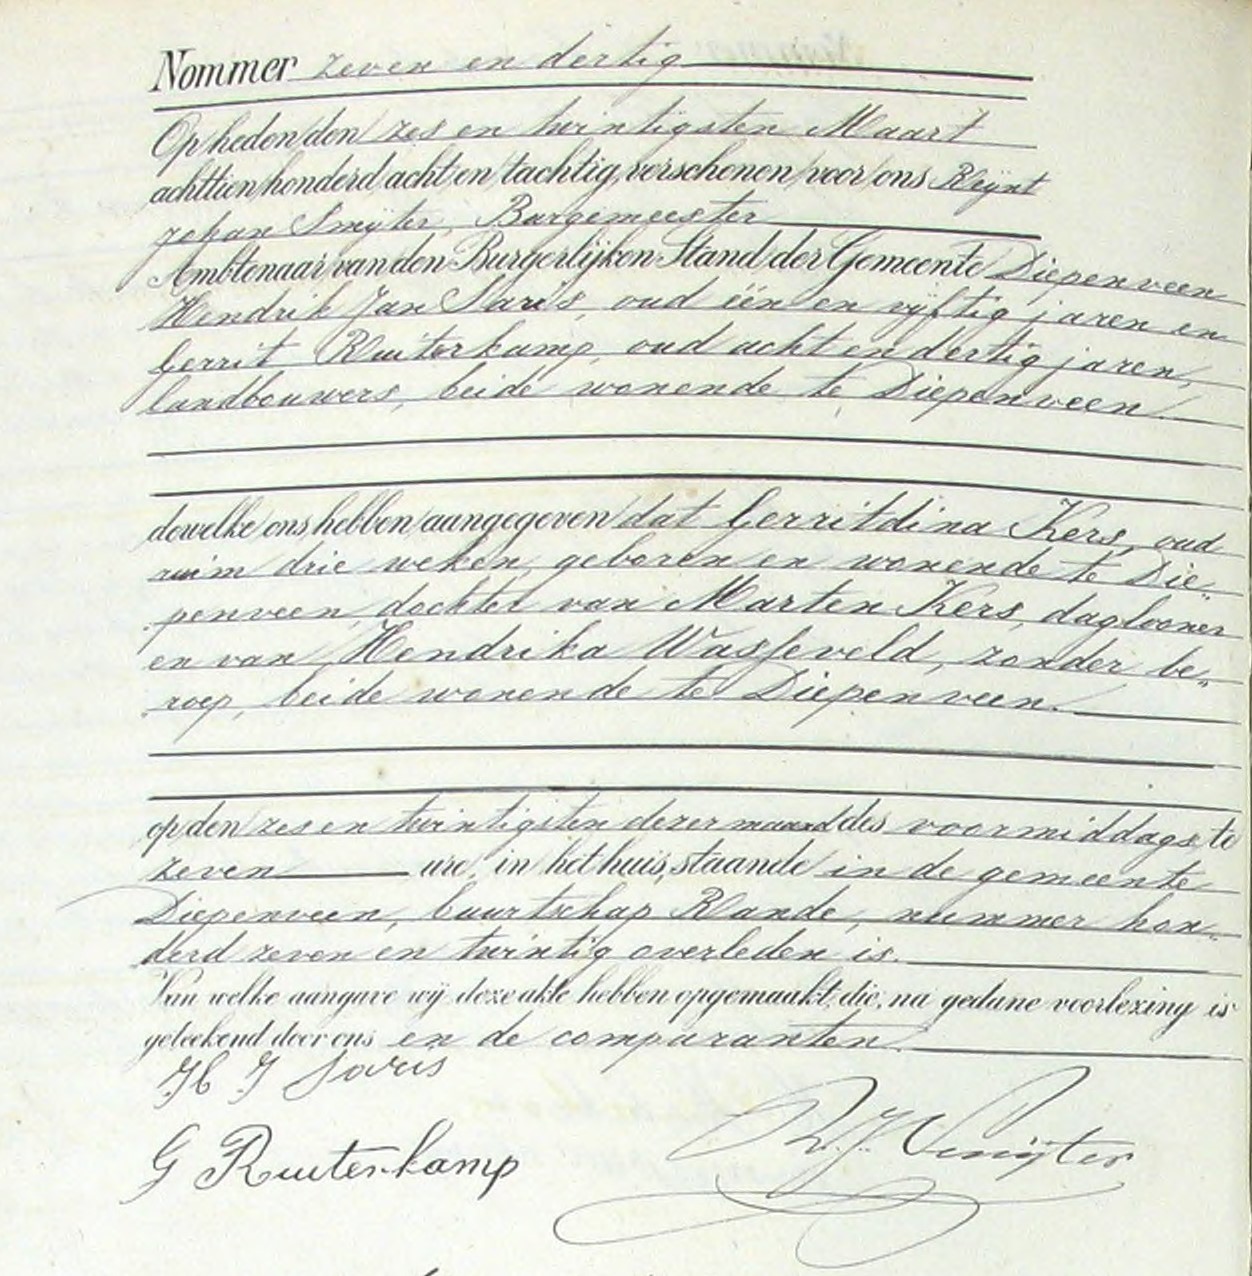 Nommer zeven en dertig
Op heden den zes en twintigsten Maart
achttien honderd acht en tachtig, verschenen voor ons Reijnt
Johan Smijter, Burgemeester
Ambtenaar van den Burgerlijken Stand der Gemeente Diepenveen
Hendrik Jan Saris, oud één en vijftig jaren en
Gerrit Ruiterkamp, oud acht en dertig jaren,
landbouwers, beide wonende te Diepenveen
dewelke ons hebben aangegeven dat Gerritdina Kers, oud
ruim drie weken, geboren en wonende te Die„
penveen, dochter van Marten Kers, daglooner
en van Hendrika Wasseveld, zonder be„
roep, beide wonende te Diepenveen.
op den zes en twintigsten dezer maand des voormiddags te
zeven ure, in het huis, staande in de gemeente
Diepenveen, buurtschap Rande, nummer hon„
derd zeven en twintig overleden is.
Van welke aangave wij deze akte hebben opgemaakt, die, na gedane voorlezing is
geteekend door ons en de comparanten.
H J Saris
R. J. Smijter
G Ruiterkamp